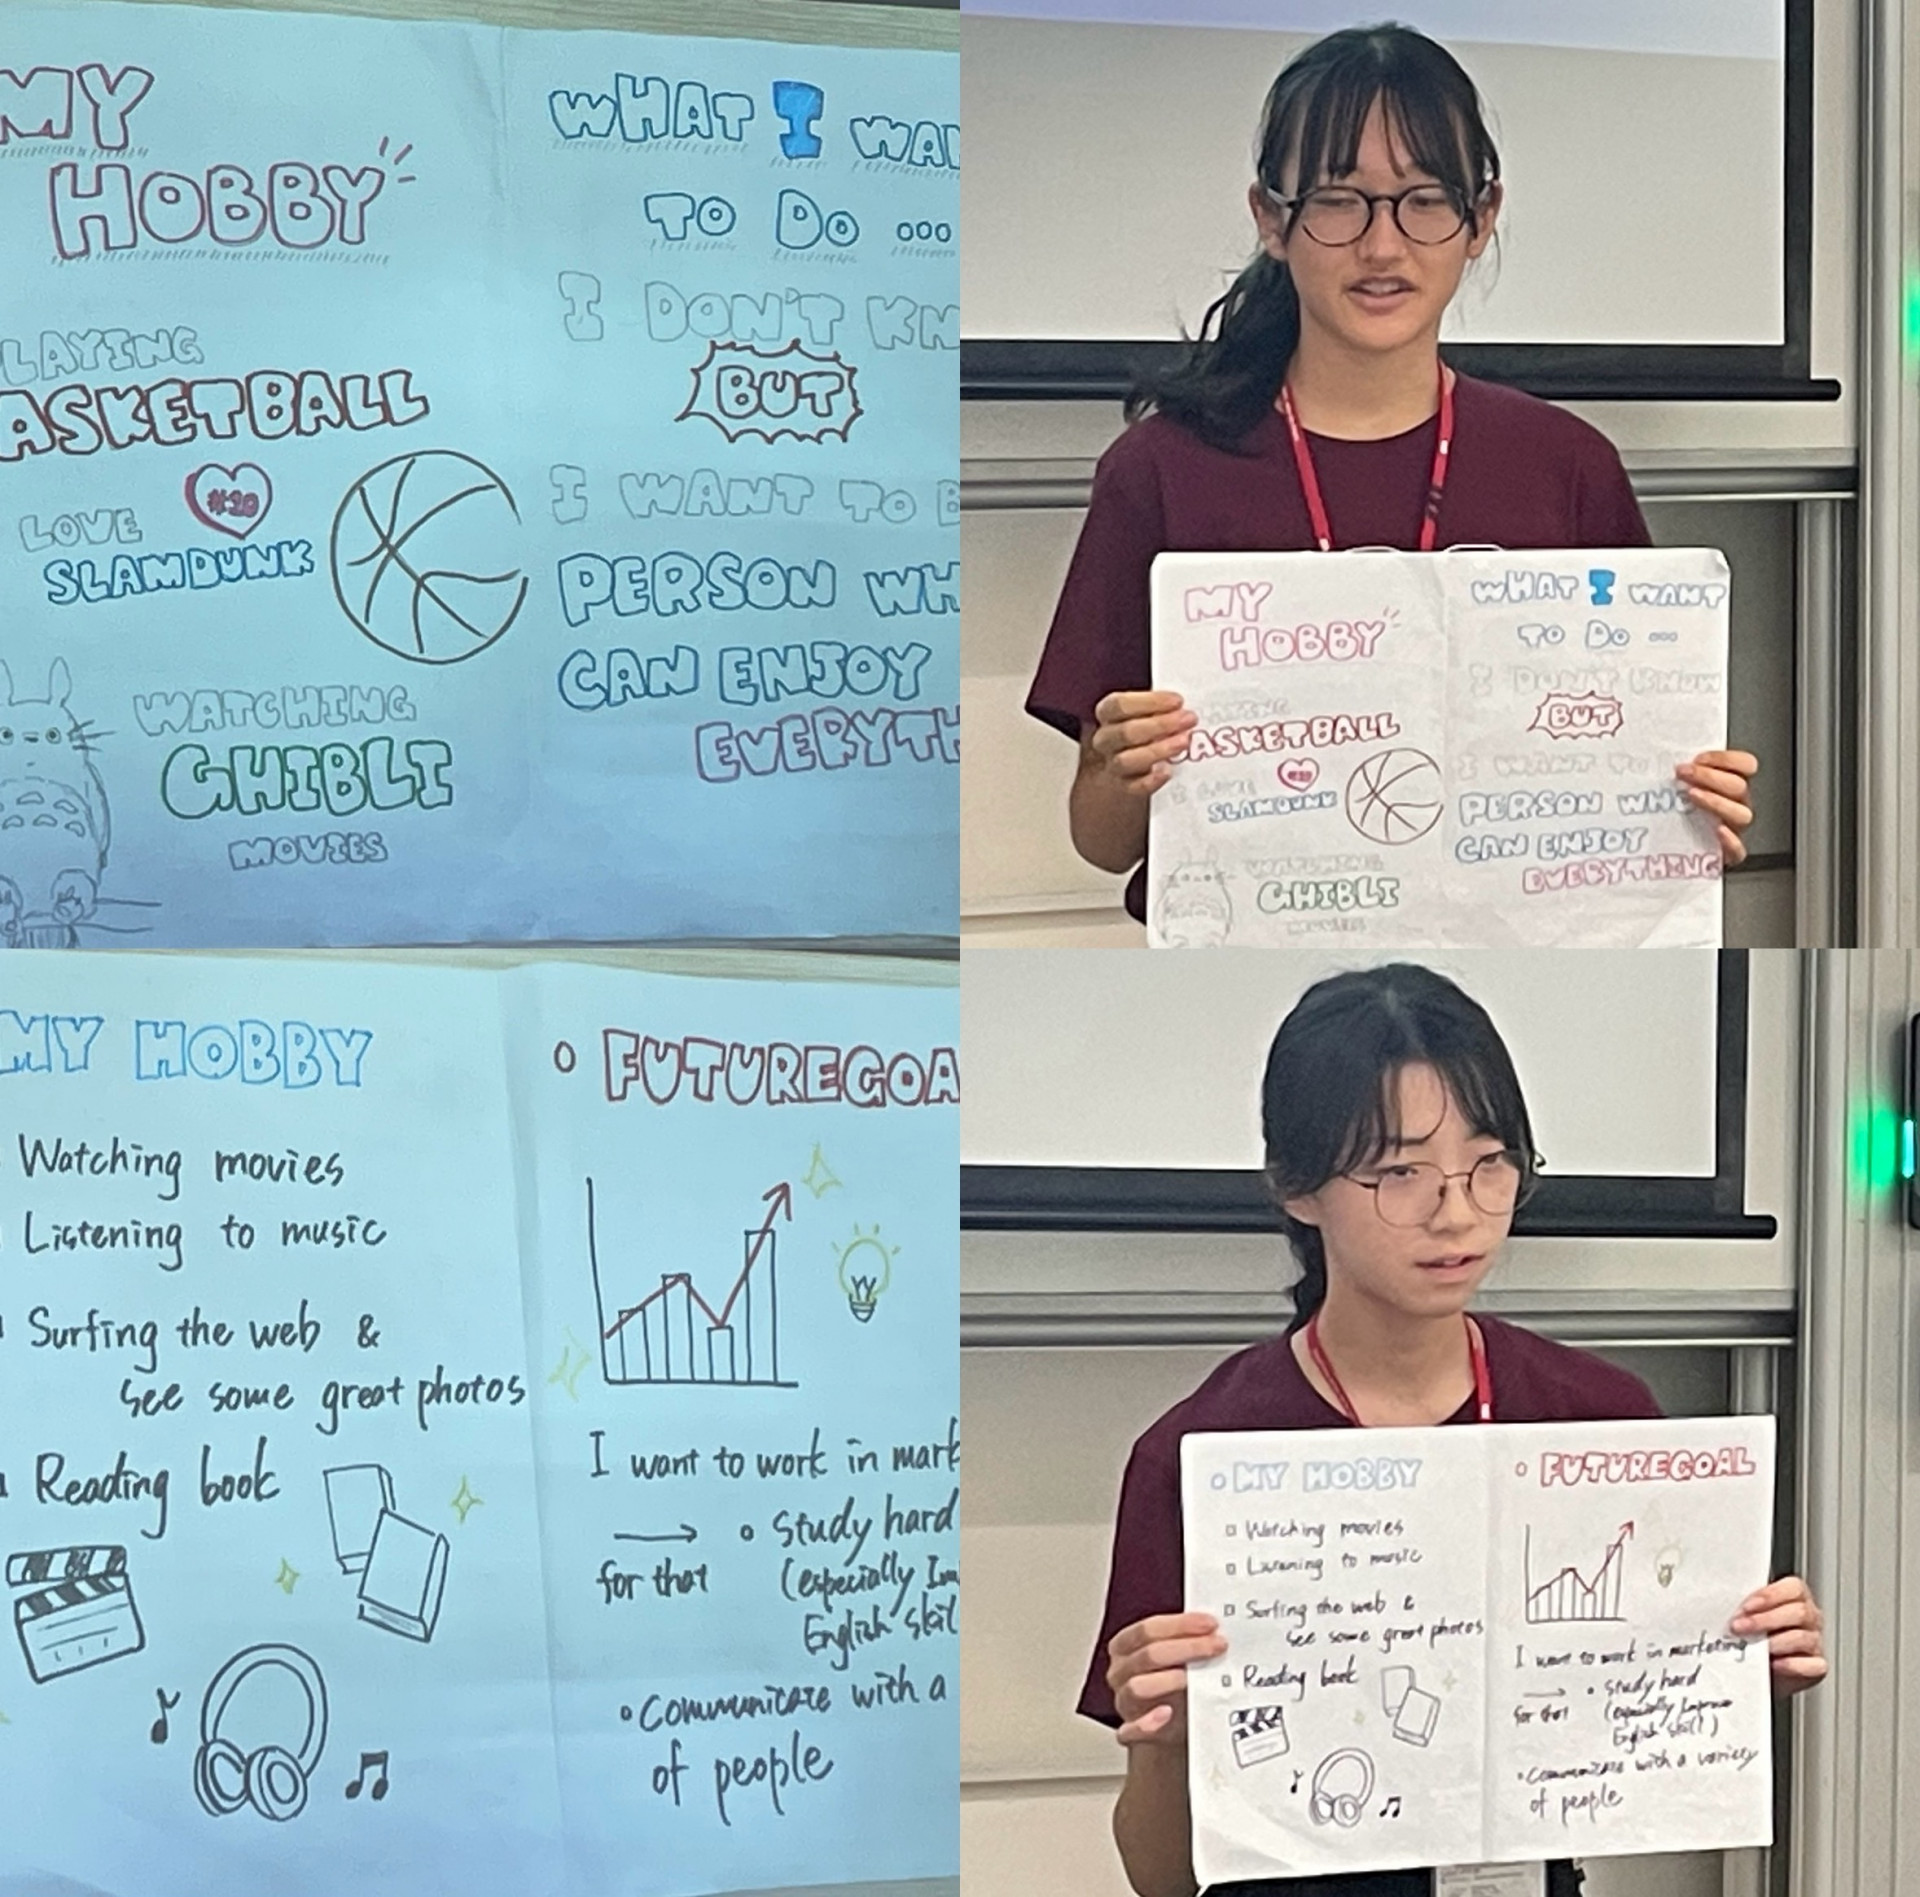 MY
HOBBY
LAYING
ASKETBALL
#10
LOVE
SLAMDUNK
WATCHING
GHIBLI
MOVIES
WHAT I WAN
TO DO ...
I DON'T KN
BUT
I WANT TO B
PERSON WH
CAN ENJOY
EVERYTH
MY
HOBBY
ASKETBALL
SLAMDUNK
WATCHING
GHIBLI
MOVIES
WHAT I WANT
TO DO ...
I DON'T KNOW
BUT
I WANT TO
PERSON WHO
CAN ENJOY
EVERYTHING
MY HOBBY
Watching movies
Listening to music
Surfing the web &
see some great photos
Reading book
FUTUREGOA
I want to work in mark
→ • Study hard
for that (especially Im
English skil
• Communicate with a
of people
• MY HOBBY
Watching movies
Listening to music
Surfing the web &
see some great photos
Reading book
• FUTUREGOAL
I want to work in marketing
→ • Study hard
for that (especially Improve
English skill)
• Communicate with a variety
of people